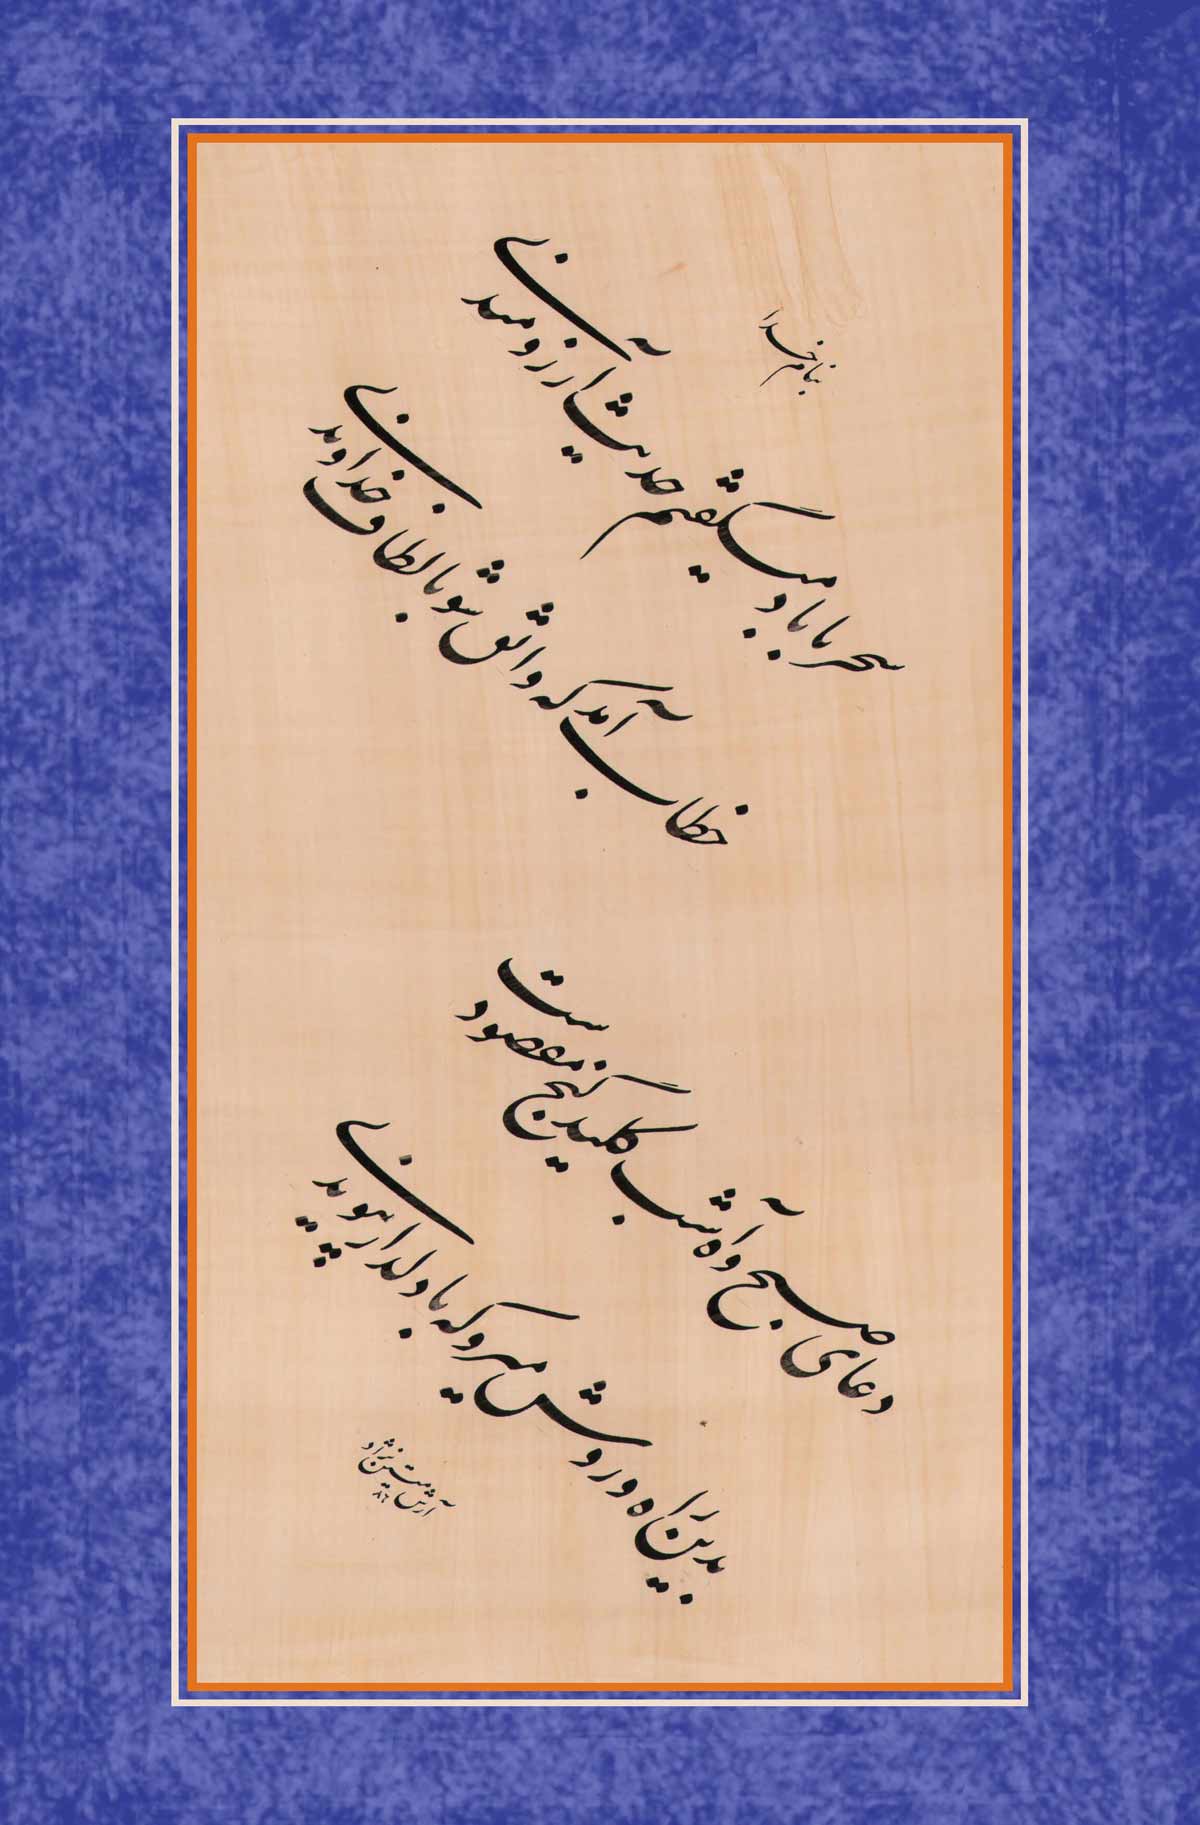 بنام خدا
سحر با باد میگفتم حدیث آرزومندی
خطاب آمد که واثق شو بالطاف خداوندی
دعای صبح و آه شب کلید گنج مقصودست
بدین راه و روش میرو که با دلدار پیوندی
آرش متین نژاد
۸۶